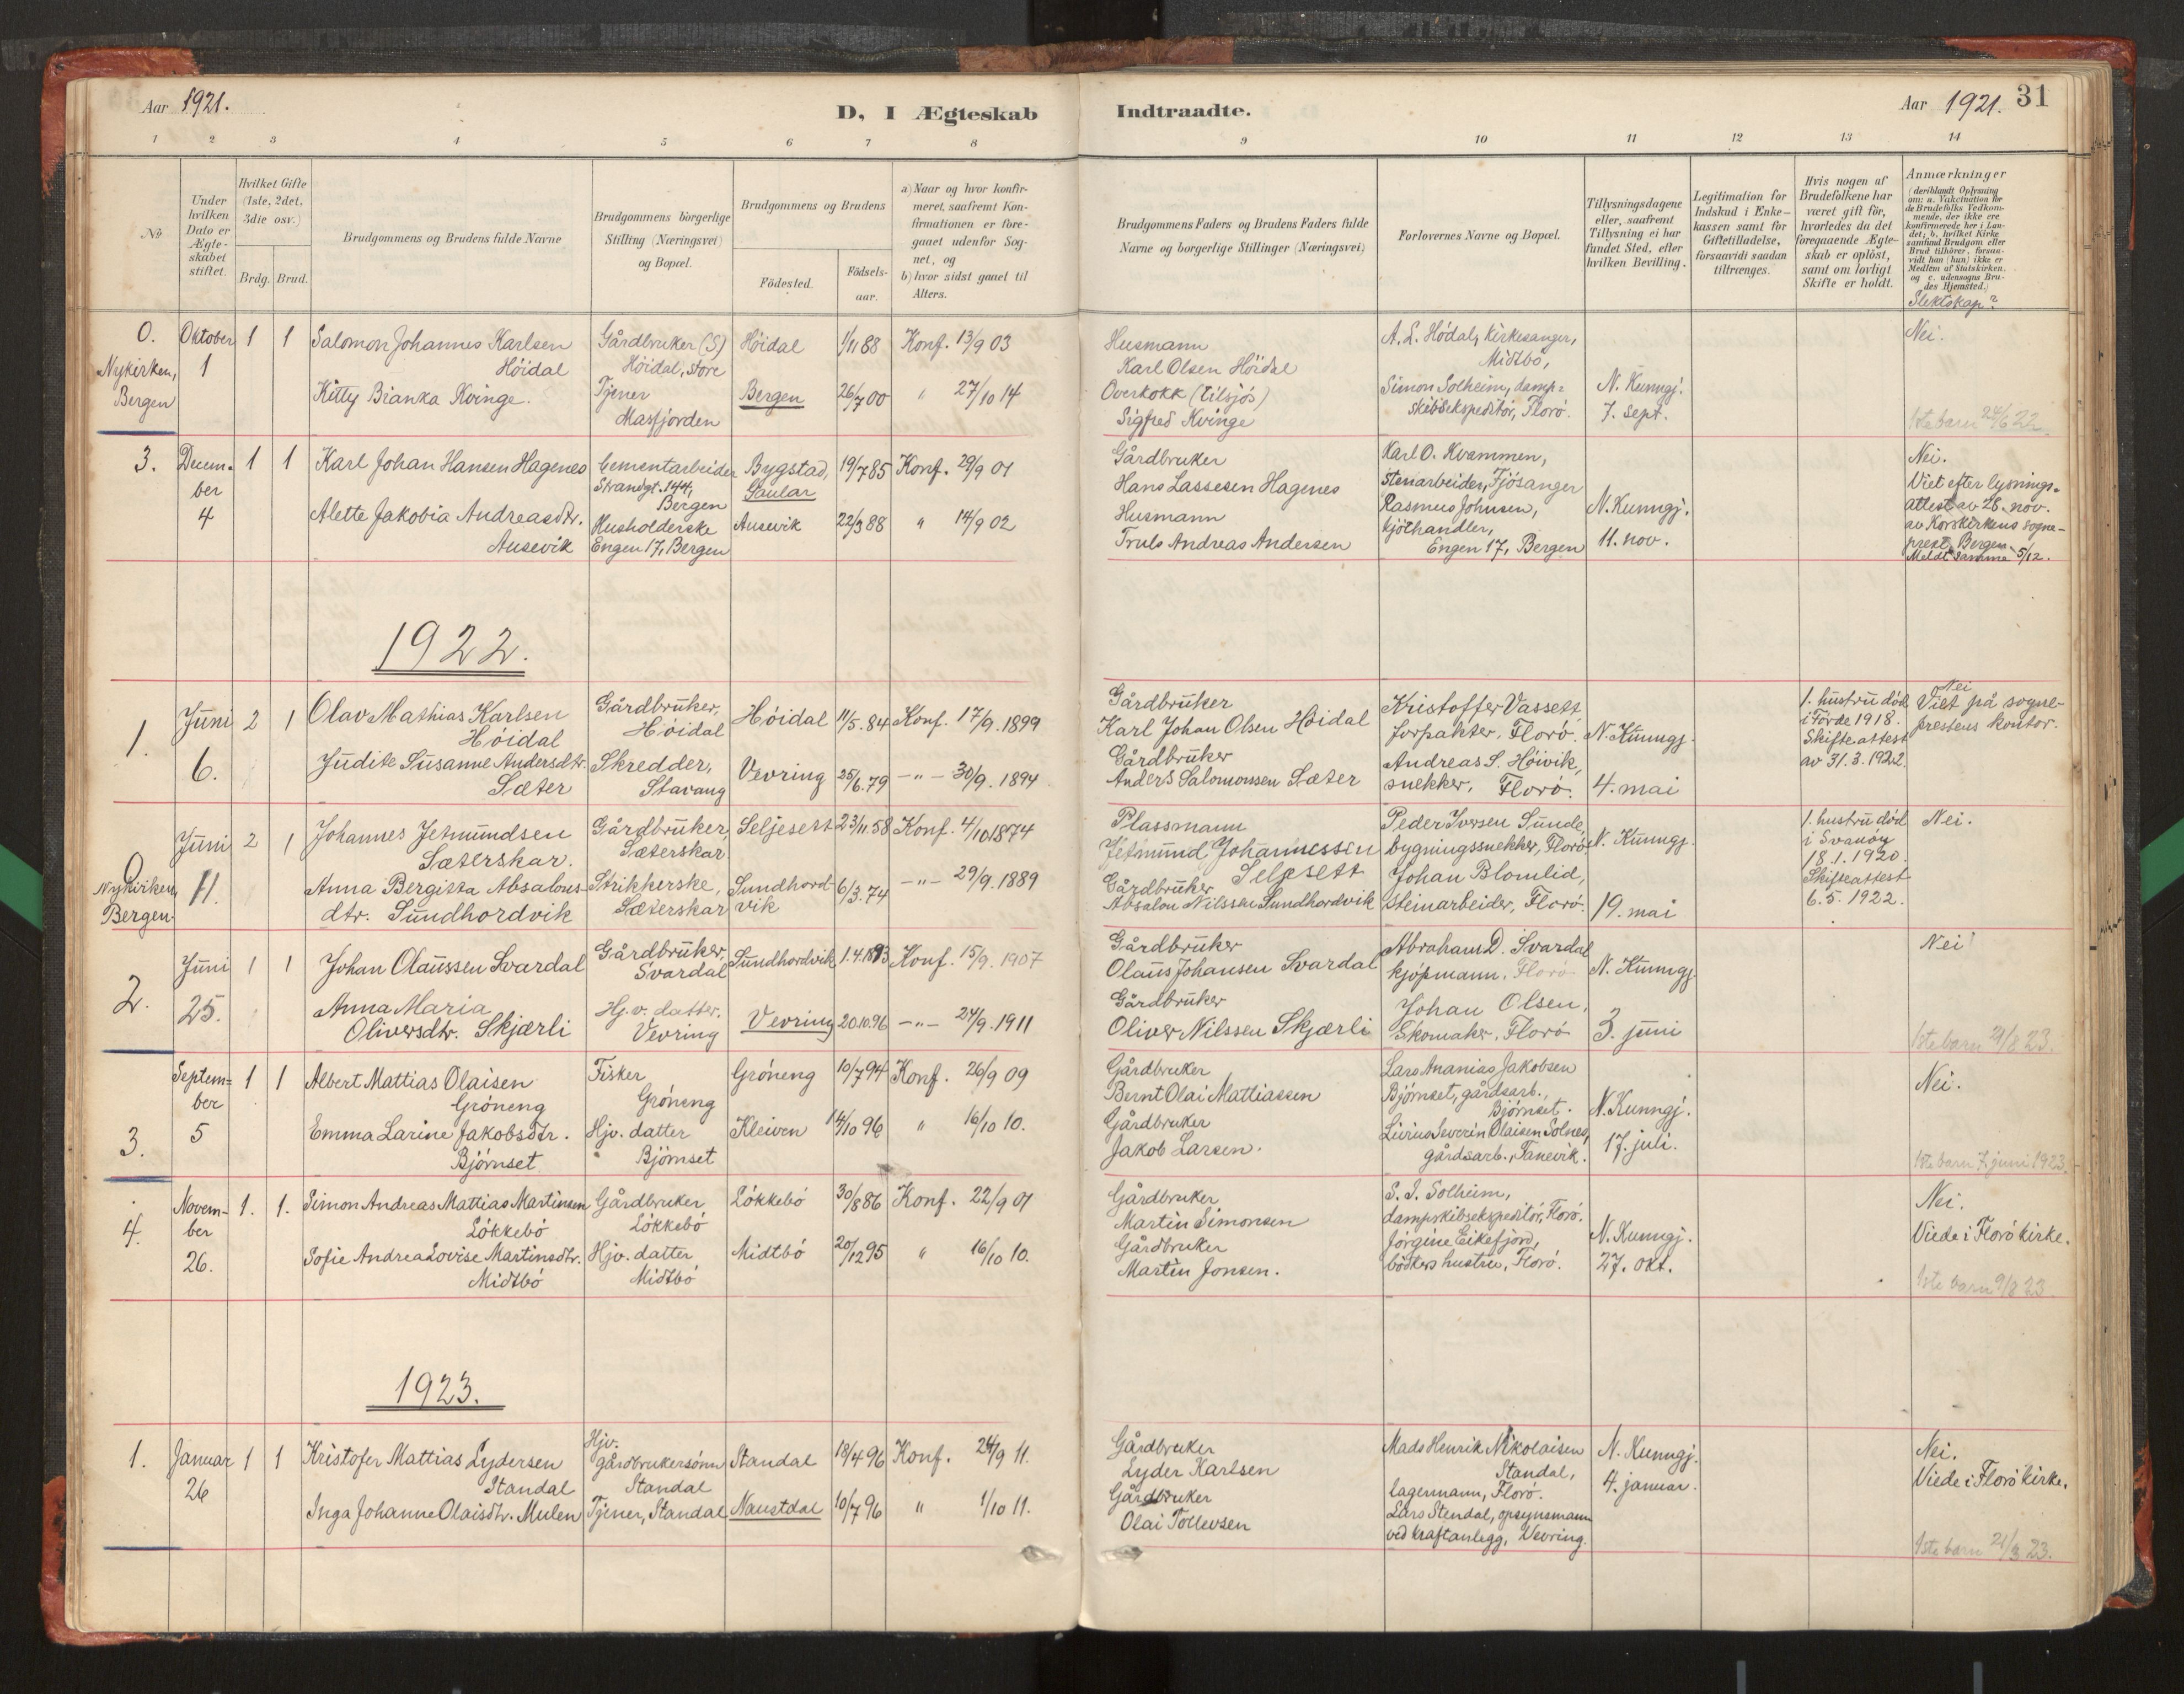 Aar 1921.
D, I Ægteskab Indtraadte.
Aar 1921. 31
1 2 3 4 5 6 7 8 9 10 11 12 13 14
No
Under hvilken Dato er Ægte-skabet stiftet.
Hvilket Gifte (1ste, 2det, 3die osv.)
Brdg. Brud.
Brudgommens og Brudens fulde Navne
Brudgommens borgerlige Stilling (Næringsvei) og Bopæl.
Brudgommens og Brudens
Födested.
Födsels-aar.
a) Naar og hvor konfir-meret, saafremt Kon-firmationen er fore-gaaet udenfor Sog-net, og
b) hvor sidst gaaet til Alters.
Brudgommens Faders og Brudens Faders fulde Navne og borgerlige Stillinger (Næringsvei)
Forlovernes Navne og Bopæl.
Tillysningsdagene eller, saafremt Tillysning ei har fundet Sted, efter hvilken Bevilling.
Legitimation for Indskud i Enke-kassen samt for Giftetilladelse, forsaavidt saadan tiltrænges.
Hvis nogen af Brudefolkene har været gift för, hvorledes da det foregaaende Ægte-skab er oplöst, samt om lovligt Skifte er holdt.
Anmærkninger
(deriblandt Oplysning om: a. Vakcination for de Brudefolks Vedkom-mende, der ikke ere konfirmerede her i Lan-det; b. hvilket Kirke samfund Brudgom eller Brud tilhörer, forsaa-vidt han (hun) ikke er Medlem af Statskirken. og c. udensogns Bru-des Hjemsted.)
Slektskap?
0. Nykirken, Bergen
Oktober 1
1 1
Salomon Johannes Karlsen Höidal
Gårdbruker (S) Höidal, store
Höidal 1/11 88 Konf. 13/9 03
Husmann
Karl Olsen Höidal
A. L. Hödal, Kirkesanger, Midtbö,
Nei.
Kitty Bianka Kvinge.
Tjener Masfjorden
Bergen 26/7 00 " 27/10 14
Overkokk (tilsjös)
Sigfred Kvinge
Simon Solheim, damp-skibsekspeditör, Florö.
N. Kunngj. 7. sept.
1ste barn 24/6 22
3. Decem-ber 4
1 1
Karl Johan Hansen Hagenes
Cementarbeider Strandgt. 144, Bergen
Bygstad, Gaular 19/7 85 Konf. 29/9 01
Gårdbruker
Hans Lassesen Hagenes
Karl O. Kvammen, Stenarbeider, Fjösanger
Nei.
Viet efter lysnings-attest av 28. nov. av Korskirkens sogne-prest, Bergen. Meldt samme 5/12.
Alette Jakobia Andreasdtr. Ausevik
Husholderske Engen 17, Bergen
Ausevik 22/3 88 " 14/9 02
Husmann
Truls Andreas Andersen
Rasmus Johnsen, kjöthandler, Engen 17, Bergen
N. Kunngj. 11. nov.
1922.
1. Juni 6.
2 1
Olav Mathias Karlsen Höidal
Gårdbruker, Höidal
Höidal 11/5. 84 Konf. 17/9. 1899
Gårdbruker
Karl Johan Olsen Höidal
Kristoffer Vassett forpakter, Florö.
N. Kunngj. 4. mai
1. hustru död i Förde 1918. Skifteattest av 31. 3. 1922.
Nei
Viet på sogne-prestens kontor.
Judite Susanne Andersdtr. Sæter
Skredder, Stavang
Vevring 25/6. 79 -"- 30/9. 1894
Gårdbruker
Anders Salomonssen Sæter
Andreas S. Höivik, snekker, Florö.
0 Nykirken, Bergen
Juni 11.
2 1
Johannes Jetmundsen Sæterskar.
Gårdbruker, Sæterskar
Seljesett 23/11. 58 Konf. 4/10 1874
Plassmann
Jetmund Johannessen Seljesett
Peder Iversen Sunde, bygningssnekker, Florö.
N. Kunngj. 19. mai
1. hustru död i Svanöy 18. 1. 1920. Skifteattest 6. 5. 1922.
Nei.
Anna Bergitta Absalons-dtr. Sundhordvik
Strikkerske, Sæterskar
Sundhord-vik 6/3. 74 -"- 29/9. 1889
Gårdbruker
Absalon Nilssen Sundhordvik
Johan Blomlid, steinarbeider, Florö.
2. Juni 25.
1 1
Johan Olaussen Svardal
Gårdbruker, Svardal
Sundhordvik 1. 4. 1893 Konf. 15/9. 1907
Gårdbruker
Olaus Johansen Svardal
Abraham D. Svardal kjöpmann, Florö
N. Kunngj. 3. juni
Nei
Anna Maria Oliversdtr. Skjærli
Hj.v. datter, Vevring
Vevring 20. 10. 96 -"- 24/9. 1911
Gårdbruker
Oliver Nilssen Skjærli
Johan Olsen, Skomaker, Florö
1ste barn 21/8 23.
3. Septem-ber 5
1 1
Albert Mattias Olaisen Gröneng
Fisker Gröneng
Gröneng 10/7 94 Konf. 26/9 09
Gårdbruker
Bernt Olai Mattiassen
Lars Ananias Jakobsen Björnset, gårdsarb., Björnset.
N. Kunngj. 17. juli.
Nei.
Emma Larine Jakobsdtr. Björnset
Hjv. datter Björnset
Kleiven 14/10 96 " 16/10 10.
Gårdbruker
Jakob Larsen.
Severin Olaisen Solnes, gårdsarb., Tanevik.
1ste barn 7. juni 1923.
4. Novem-ber 26.
1. 1.
Simon Andreas Mattias Martinsen Lökkebö
Gårdbruker Lökkebö
Lökkebö 30/8 86 Konf. 22/9 01
Gårdbruker
Martin Simonsen
S. J. Solheim, dampskibsekspeditör, Florö.
N. Kunngj. 27. okt.
Nei.
Viede i Florö kirke.
Sofie Andrea Lovise Martinsdtr. Midtbö
Hjv. datter Midtbö
Midtbö 20/12 95 " 16/10 10.
Gårdbruker
Martin Jonsen.
Jörgine Eikefjord, bödkers hustru, Florö.
1ste barn 9/8 23
1923.
1. Januar 26
1 1
Kristofer Mattias Lydersen Standal
Hjv. gårdbrukersönn Standal
Standal 18/4 96 Konf. 24/9 11.
Gårdbruker
Lyder Karlsen
Mads Henrik Nikolaisen Standal, lagermann, Florö.
N. Kunngj. 4. januar.
Nei.
Viede i Florö kirke.
Inga Johanne Olaisdtr. Mulen
Tjener, Standal
Naustdal 10/7 96 " 1/10 11.
Gårdbruker
Olai Tollevsen
Lars Stendal, opsynsmann ved kraftanlegg, Vevring.
1ste barn 21/3 23.